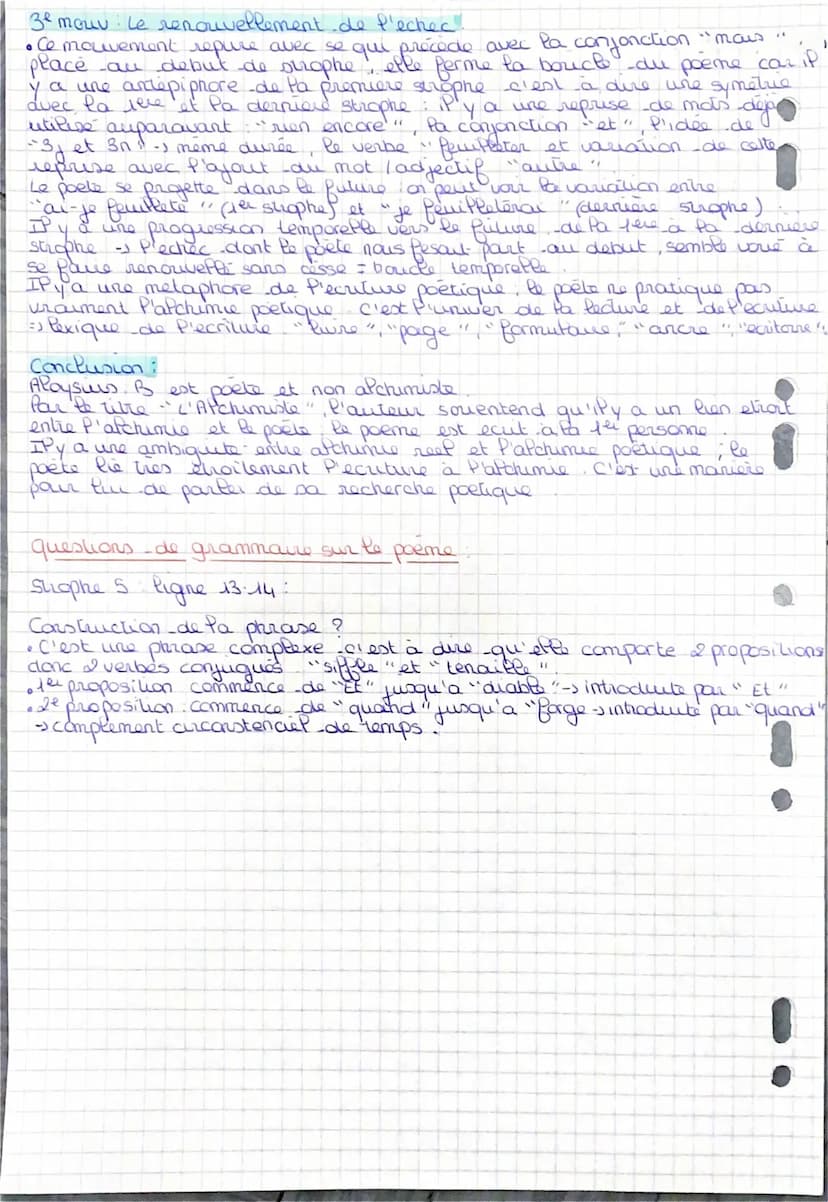 3e mouv : Le renouvellement de l'echec
• Ce mouvement repure avec se qui précède avec la conjonction "mais",
placé au debut de strophe, elle ferme la boucle du poème car il
y a une antépiphore de la première strophe c'est à dire une symétrie
avec la 1ère et la dernière strophe : il y a une reprise de mots déjà
utilisé auparavant : "rien encore", la conjonction "et", l'idée de
"3j et 3n" -> même durée, le verbe "feuilleter et variation de cette
reprise avec l'ajout du mot / adjectif "autre".
Le poète se progette dans le future : on peut voir la variation entre
"ai-je feuilleté" (1er strophe) et "je feuilleterai" (dernière strophe).
Il y a une progression temporelle vers le future, de la 1ère à la dernière
strophe -> l'echec dont le poète nous fesait part au debut, semble voué à
se faire renouvellé sans cesse = boucle temporelle.
Il y a une metaphore de l'ecriture poétique, le poète ne pratique pas
vraiment l'alchimie poétique. C'est l'univer de la lecture et de l'ecriture
=> lexique de l'ecriture "livre", "page", "formulaire", "ancre",
Conclusion :
Aloysius. B est poète et non alchimiste.
Par le titre "L'Alchimiste", l'auteur souentend qu'il y a un lien etroit
entre l'alchimie et le poète. le poeme est ecrit à la 1er personne.
Il y a une ambiguité entre alchimie réel et l'alchimie poétique ; le
poète lie très étroitement l'ecriture à l'alchimie. C'est une manière
pour lui de parler de sa recherche poetique
questions de grammaire sur le poème :
Strophe 5 ligne 13-14 :
Construction de la phrase ?
• C'est une phrase complexe c'est à dire qu'elle comporte 2 propositions
donc 2 verbes conjugués "siffle" et "tenaille"
• 1er proposition commence de "Et" jusqu'a "diable" -> introduite par "Et"
• 2e proposition : commence de "quand" jusqu'a "forge -> introduite par "quand"
-> complément circonstenciel de temps.